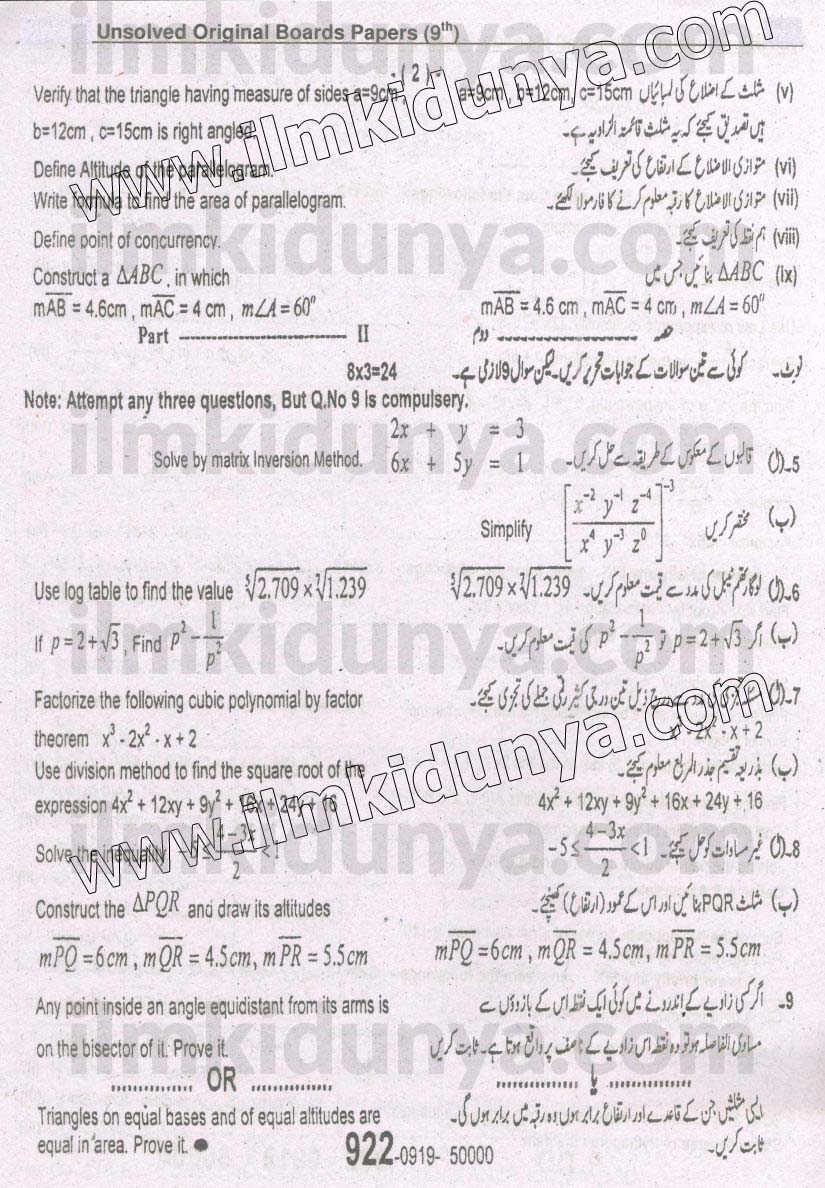 Unsolved Original Boards Papers (9th)
- ( 2 ) -
Verify that the triangle having measure of sides a=9cm,
a=9cm , b=12cm, c=15cm مثلث کے اضلاع کی لمبائیاں (v)
b=12cm , c=15cm is right angled.
ہیں تصدیق کیجئے کہ یہ مثلث قائمتہ الزاویہ ہے۔
Define Altitude of the parallelogram.
متوازی الاضلاع کے ارتفاع کی تعریف کیجئے۔ (vi)
Write formula to find the area of parallelogram.
متوازی الاضلاع کا رقبہ معلوم کرنے کا فارمولا لکھئے۔ (vii)
Define point of concurrency.
ہم نقطہ کی تعریف کیجئے۔ (viii)
Construct a ΔABC , in which
ΔABC بنائیں جس میں (ix)
mAB = 4.6cm , mAC = 4 cm , m∠A = 60⁰
mAB = 4.6 cm , mAC = 4 cm , m∠A = 60⁰
Part ---------------------------- II
حصہ ---------------------------- دوم
8x3=24
نوٹ۔ کوئی سے تین سوالات کے جوابات تحریر کریں۔ لیکن سوال 9 لازمی ہے۔
Note: Attempt any three questions, But Q.No 9 is compulsery.
2x + y = 3
Solve by matrix Inversion Method. 6x + 5y = 1 قالبوں کے معکوس کے طریقہ سے حل کریں۔ 5۔(ا)
Simplify [x⁻² y⁻¹ z⁻⁴ / x⁴ y⁻³ z⁰]⁻³ مختصر کریں (ب)
Use log table to find the value ⁵√2.709 × ⁷√1.239
⁵√2.709 × ⁷√1.239 لوگارتھم ٹیبل کی مدد سے قیمت معلوم کریں۔ 6۔(ا)
If p = 2+√3 , Find p² - 1/p²
اگر p = 2+√3 تو p² - 1/p² کی قیمت معلوم کریں۔ (ب)
Factorize the following cubic polynomial by factor
ذیل تین درجی کثیر رقمی جملے کی تجزی کیجئے۔ 7۔(ا)
theorem x³ - 2x² - x + 2
- 2x² - x + 2
Use division method to find the square root of the
بذریعہ تقسیم جذر المربع معلوم کیجئے۔ (ب)
expression 4x² + 12xy + 9y² + 16x + 24y + 16
4x² + 12xy + 9y² + 16x + 24y + 16
Solve the inequality -5 ≤ (4-3x)/2 < 1
-5 ≤ (4-3x)/2 < 1 غیر مساوات کو حل کیجئے۔ 8۔(ا)
Construct the ΔPQR and draw its altitudes
مثلث PQR بنائیں اور اس کے عمود (ارتفاع) کھینچئے۔ (ب)
mPQ = 6cm , mQR = 4.5cm, mPR = 5.5cm
mPQ = 6cm , mQR = 4.5cm, mPR = 5.5cm
Any point inside an angle equidistant from its arms is
اگر کسی زاویے کے اندرونے میں کوئی ایک نقطہ اس کے بازوؤں سے 9۔
on the bisector of it. Prove it.
مساوی الفاصلہ ہو تو وہ نقطہ اس زاویے کے ناصف پر واقع ہوتا ہے۔ ثابت کریں
............... OR ...............
............... یا ...............
Triangles on equal bases and of equal altitudes are
ایسی مثلثیں جن کے قاعدے اور ارتفاع برابر ہوں وہ رقبہ میں برابر ہوں گی۔
equal in area. Prove it. ●
ثابت کریں۔
922-0919- 50000
www.ilmkidunya.com
www.ilmkidunya.com
ilmkidunya.com
ilmkidunya.com
ilmkidunya.com
ilmkidunya.com
ilmkidunya.com
ilmkidunya.com